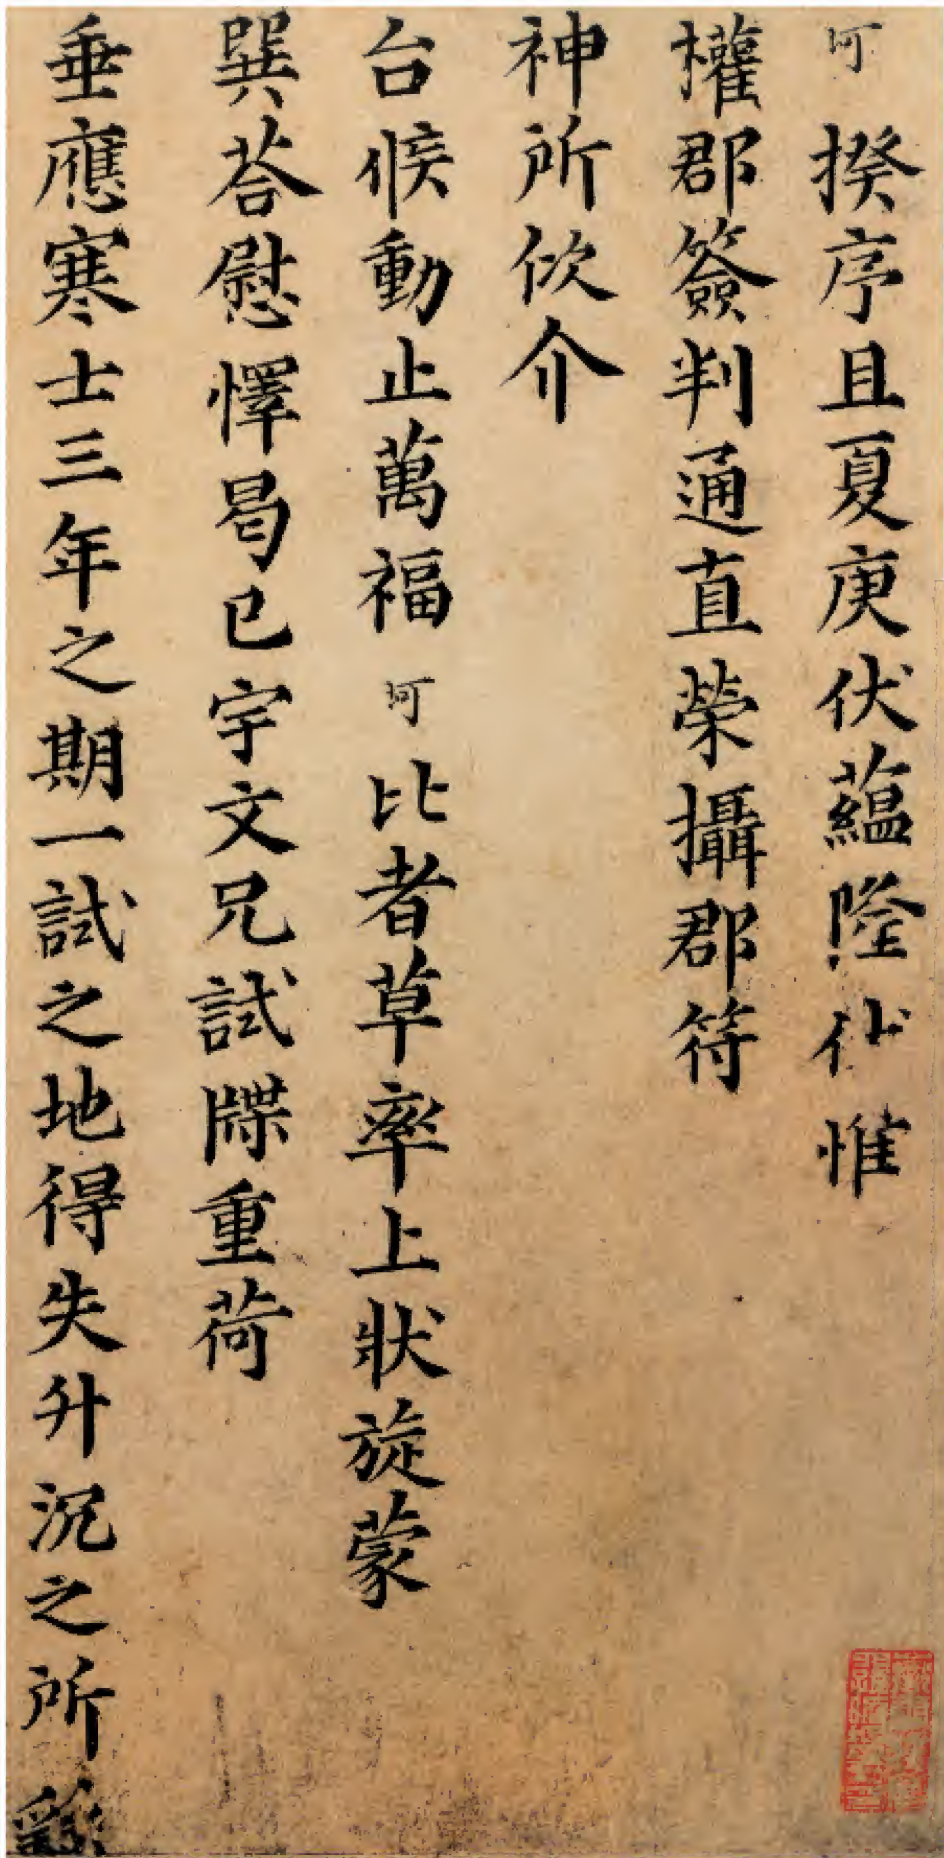 坷揆序且夏庚伏蘊隆伏惟
權郡簽判通直榮攝郡符
神所依介
台候動止萬福坷比者草率上狀旋蒙
巽荅慰懌曷已宇文兄試牒重荷
垂應寒士三年之期一試之地得失升沉之所繇